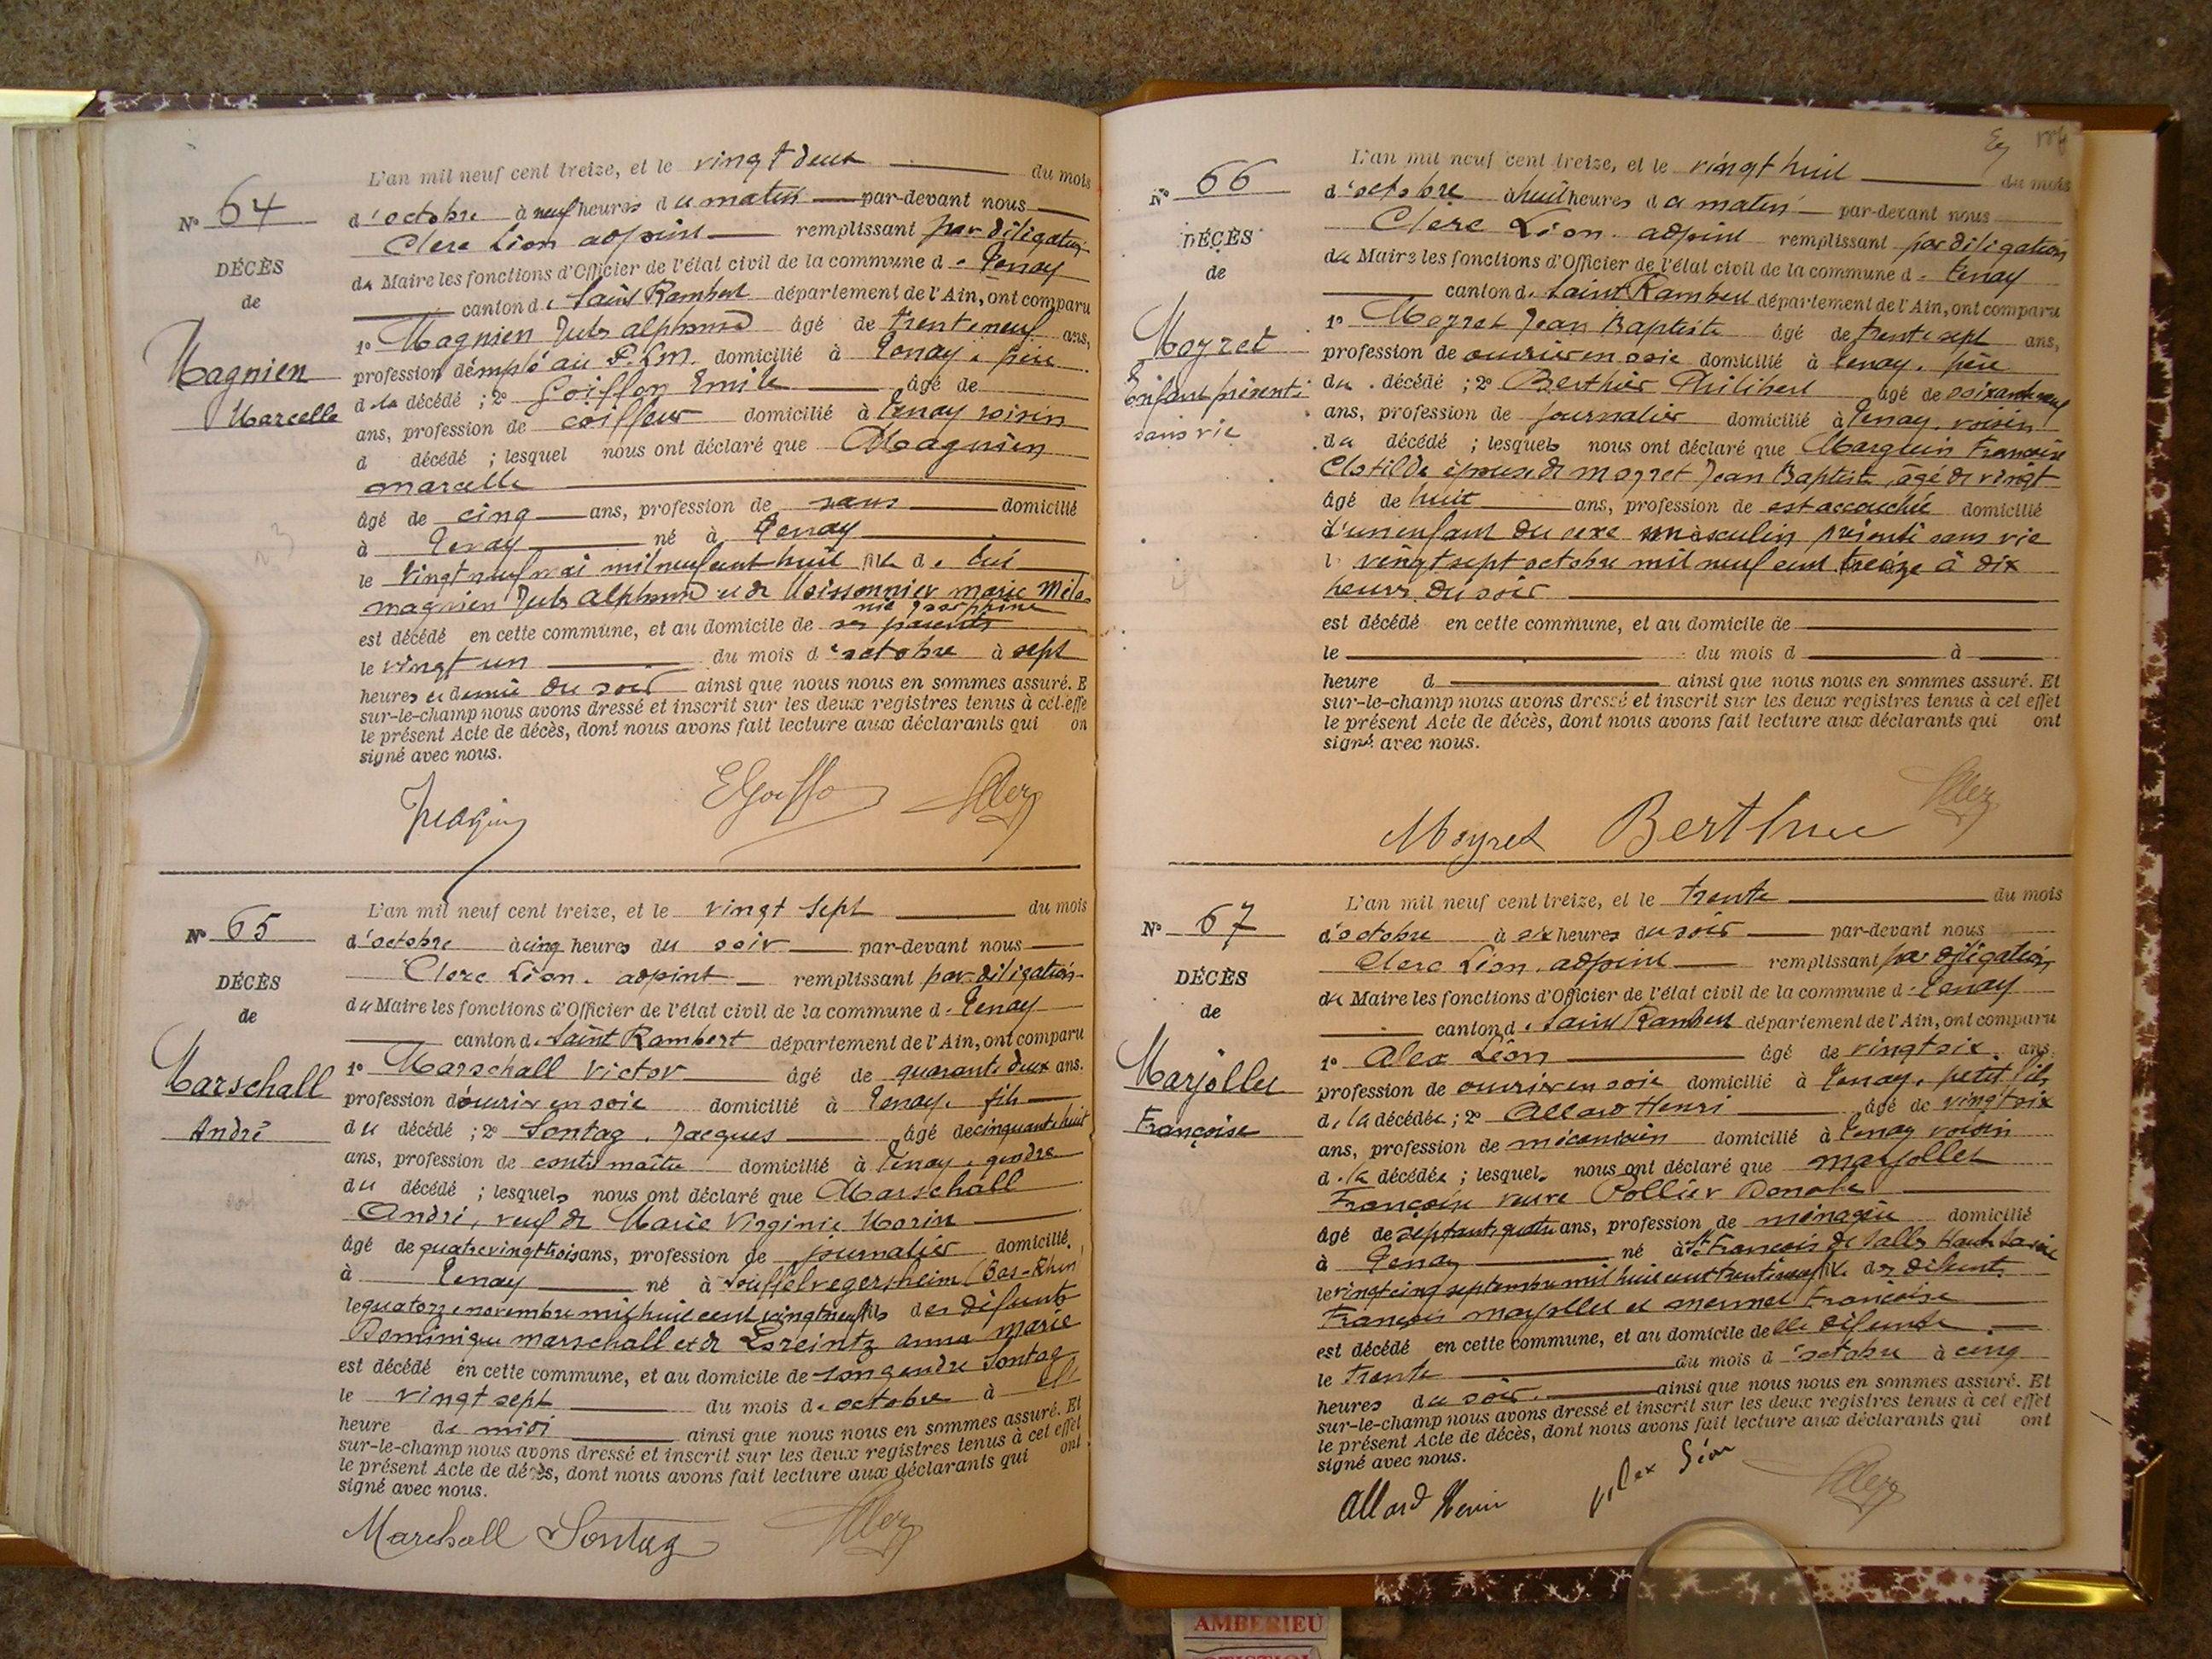 L'an mil neuf cent treize, et le vingt deux du mois
N° 64
d'octobre à neuf heures du matin par-devant nous
Clerc Léon adjoint remplissant par délégation
DÉCÈS
du Maire les fonctions d'Officier de l'état civil de la commune de Tenay
de
canton de Saint Rambert département de l'Ain, ont comparu
Magnien
Marcelle
1° Magnien Jules Alphonse âgé de trente neuf ans,
profession d'employé au P.L.M. domicilié à Tenay, père
de la décédé ; 2° Goiffon Emile âgé de
ans, profession de coiffeur domicilié à Tenay voisin
d décédé ; lesquel nous ont déclaré que Magnien
Marcelle
âgé de cinq ans, profession de sans domicilié
à Tenay né à Tenay
le vingt neuf mai mil neuf cent huit fille de
Magnien Jules Alphonse et de Marie Méla
nie Josephine
est décédé en cette commune, et au domicile de ses parents
le vingt un du mois d'octobre à sept
heures et demie du soir ainsi que nous nous en sommes assuré. E
sur-le-champ nous avons dressé et inscrit sur les deux registres tenus à cet effe
le présent Acte de décès, dont nous avons fait lecture aux déclarants qui on
signé avec nous.
EGoiffon Clerc
L'an mil neuf cent treize, et le vingt sept du mois
N° 65
d'octobre à cinq heures du soir par-devant nous
Clerc Léon. adjoint remplissant par délégation
DÉCÈS
du Maire les fonctions d'Officier de l'état civil de la commune de Tenay
de
canton de Saint Rambert département de l'Ain, ont comparu
Marschall
André
1° Marschall Victor âgé de quarante deux ans.
profession d'ouvrier en soie domicilié à Tenay. fils
du décédé ; 2° Sontag. Jacques âgé de cinquante huit
ans, profession de contremaître domicilié à Tenay, gendre
du décédé ; lesquels nous ont déclaré que Marschall
André, veuf de Marie Virginie Morin
âgé de quatre vingt trois ans, profession de journalier domicilié,
à Tenay né à Souffelvegersheim (Bas-Rhin)
le quatorze novembre mil huit cent vingt neuf fils des défunts
Dominique Marschall et de Loreintz anna marie
est décédé en cette commune, et au domicile de son gendre Sontag
le vingt sept du mois d'octobre à
heure de midi ainsi que nous nous en sommes assuré. Et
sur-le-champ nous avons dressé et inscrit sur les deux registres tenus à cet effet
le présent Acte de décès, dont nous avons fait lecture aux déclarants qui ont
signé avec nous.
Marchall Sontag Clerc
L'an mil neuf cent treize, et le vingt huit du mois
N° 66
d'octobre à huit heures du matin par-devant nous
Clerc Léon. adjoint remplissant par délégation
DÉCÈS
du Maire les fonctions d'Officier de l'état civil de la commune de Tenay
de
canton de Saint Rambert département de l'Ain, ont comparu
Moyret
Enfant présenté
sans vie
1° Moyret Jean Baptiste âgé de trente sept ans,
profession de ouvrier en soie domicilié à Tenay. père
du décédé ; 2° Berthier Philibert âgé de soixante neuf
ans, profession de journalier domicilié à Tenay. voisin
du décédé ; lesquels nous ont déclaré que Marguin Françoise
Clotilde épouse de Moyret Jean Baptiste, âgé de vingt
âgé de huit ans, profession de est accouchée domicilié
d'un enfant du sexe masculin présenté sans vie
le vingt sept octobre mil neuf cent treize à dix
heures du soir
est décédé en cette commune, et au domicile de
le du mois d à
heure d ainsi que nous nous en sommes assuré. Et
sur-le-champ nous avons dressé et inscrit sur les deux registres tenus à cet effet
le présent Acte de décès, dont nous avons fait lecture aux déclarants qui ont
signé avec nous.
Moyret Berthier Clerc
L'an mil neuf cent treize, et le trente du mois
N° 67
d'octobre à six heures du soir par-devant nous
Clerc Léon, adjoint remplissant par délégation
DÉCÈS
du Maire les fonctions d'Officier de l'état civil de la commune de Tenay
de
canton de Saint Rambert département de l'Ain, ont comparu
Marjollet
Françoise
1° Alex Léon âgé de vingt six ans
profession de ouvrier en soie domicilié à Tenay, petit fils
de la décédée ; 2° Allard Henri âgé de vingt six
ans, profession de mécanicien domicilié à Tenay voisin
de la décédée ; lesquels nous ont déclaré que Marjollet
Françoise veuve Pollier Donate
âgé de septante quatre ans, profession de ménagère domicilié
à Tenay né à St François de Salles Haute Savoie
le vingt cinq septembre mil huit cent trente neuf fille des défunts
François Marjollet et Mermet Françoise
est décédé en cette commune, et au domicile de elle défunte
le trente du mois d'octobre à cinq
heures du soir. ainsi que nous nous en sommes assuré. Et
sur-le-champ nous avons dressé et inscrit sur les deux registres tenus à cet effet
le présent Acte de décès, dont nous avons fait lecture aux déclarants qui ont
signé avec nous.
Allard Henri Alex Léon Clerc
AMBERIEU